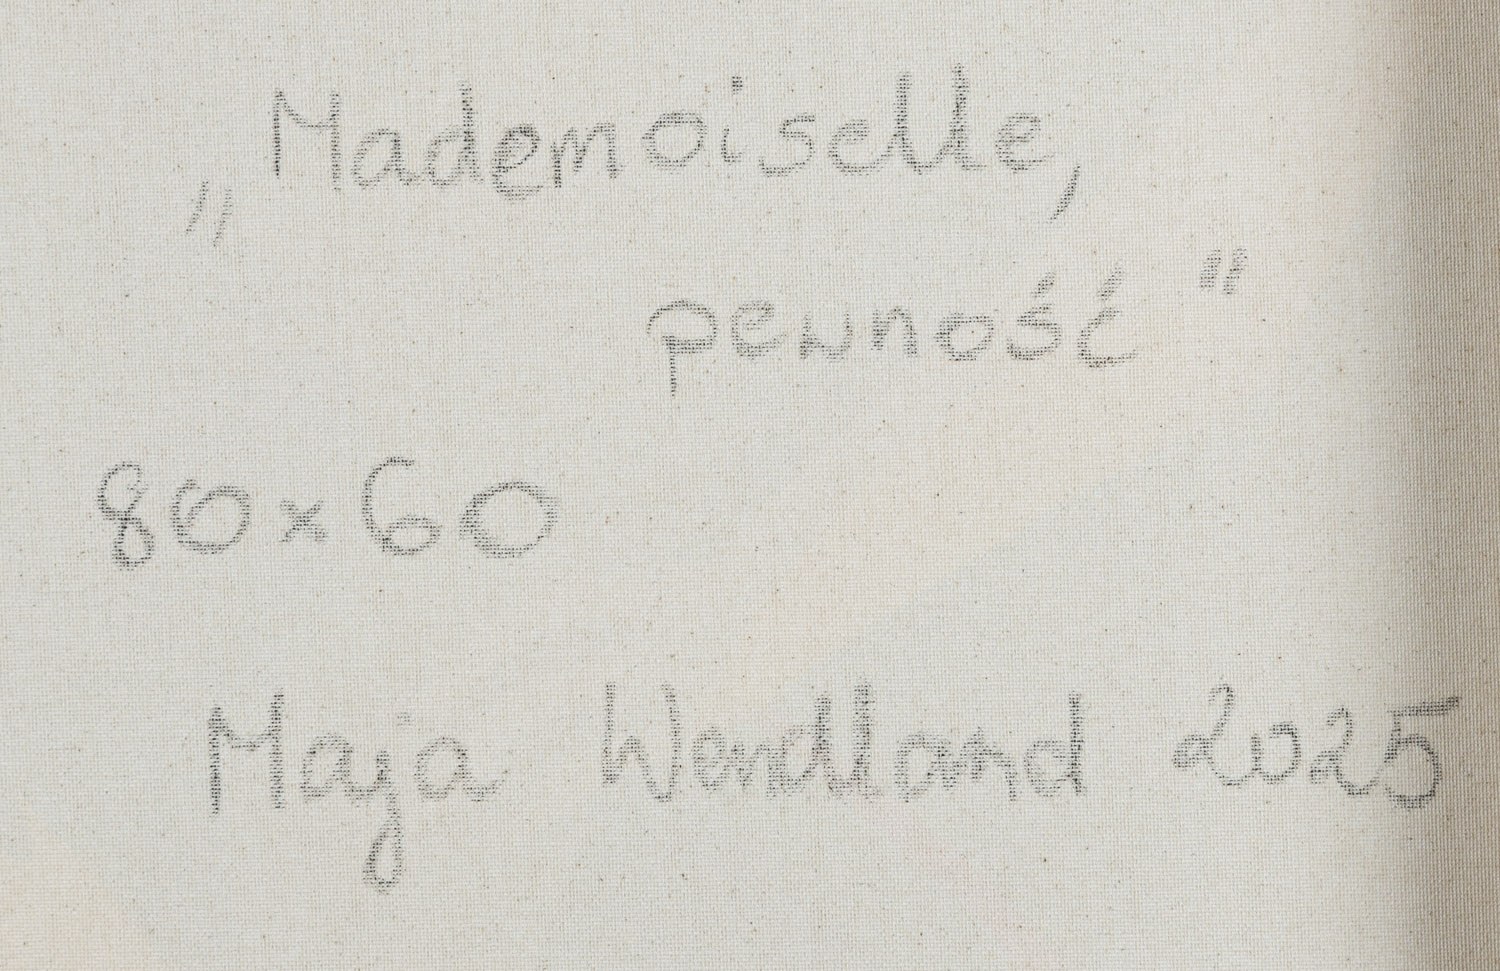 „Mademoiselle,
pewność"
80x60
Maja Wendland 2025